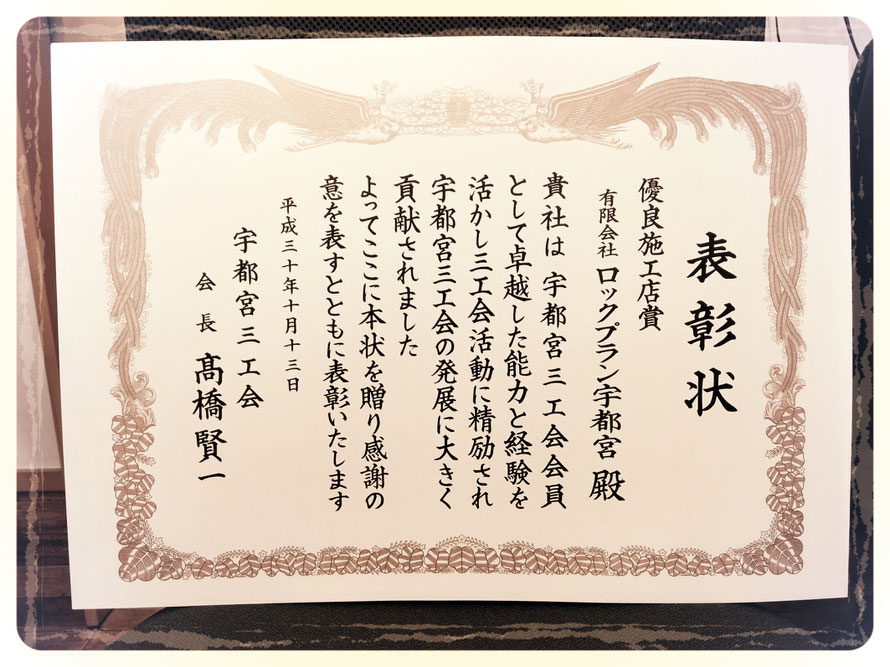 表彰状
優良施工店賞
有限会社 ロックプラン宇都宮 殿
貴社は 宇都宮三工会会員
として卓越した能力と経験を
活かし三工会活動に精励され
宇都宮三工会の発展に大きく
貢献されました
よってここに本状を贈り感謝の
意を表すとともに表彰いたします
平成三十年十月十三日
宇都宮三工会
会長 髙橋賢一